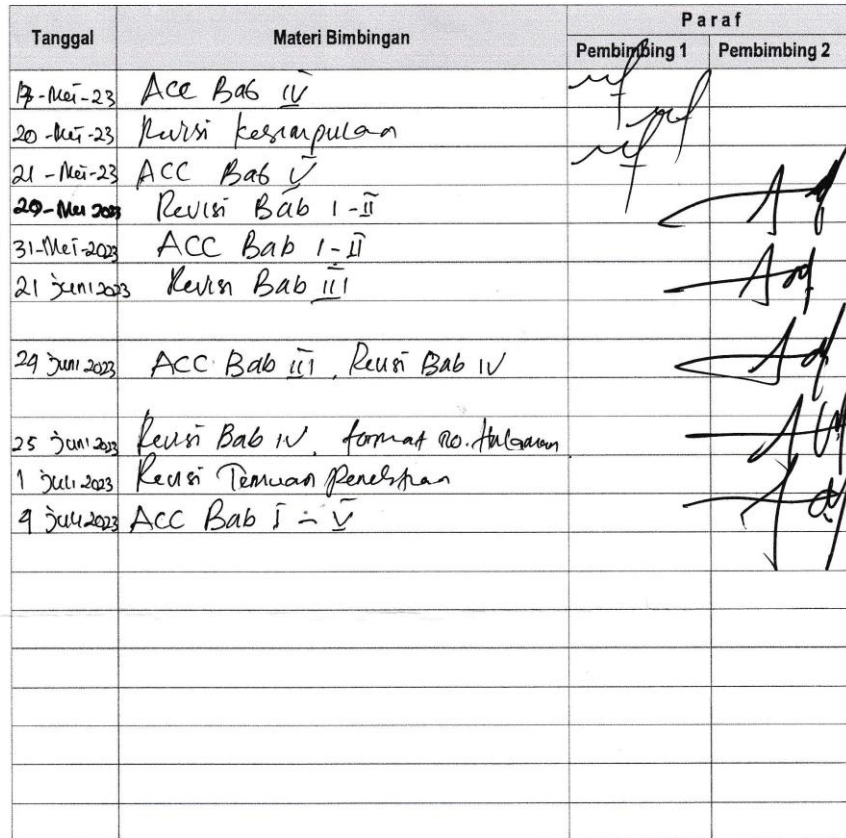 Tanggal Materi Bimbingan Paraf
Pembimbing 1 Pembimbing 2
-Mei-23 Acc Bab IV
20-Mei-23 Revisi kesimpulan
21-Mei-23 ACC Bab V
29-Mei 2023 Revisi Bab I-II
31-Mei-2023 ACC Bab I-II
21 Juni 2023 Revisi Bab III
Juni 2023 ACC Bab III, Revisi Bab IV
25 Juni 2023 Revisi Bab IV, format no. Halaman
1 Juli 2023 Revisi Temuan Penelitian
Juli 2023 ACC Bab I - V